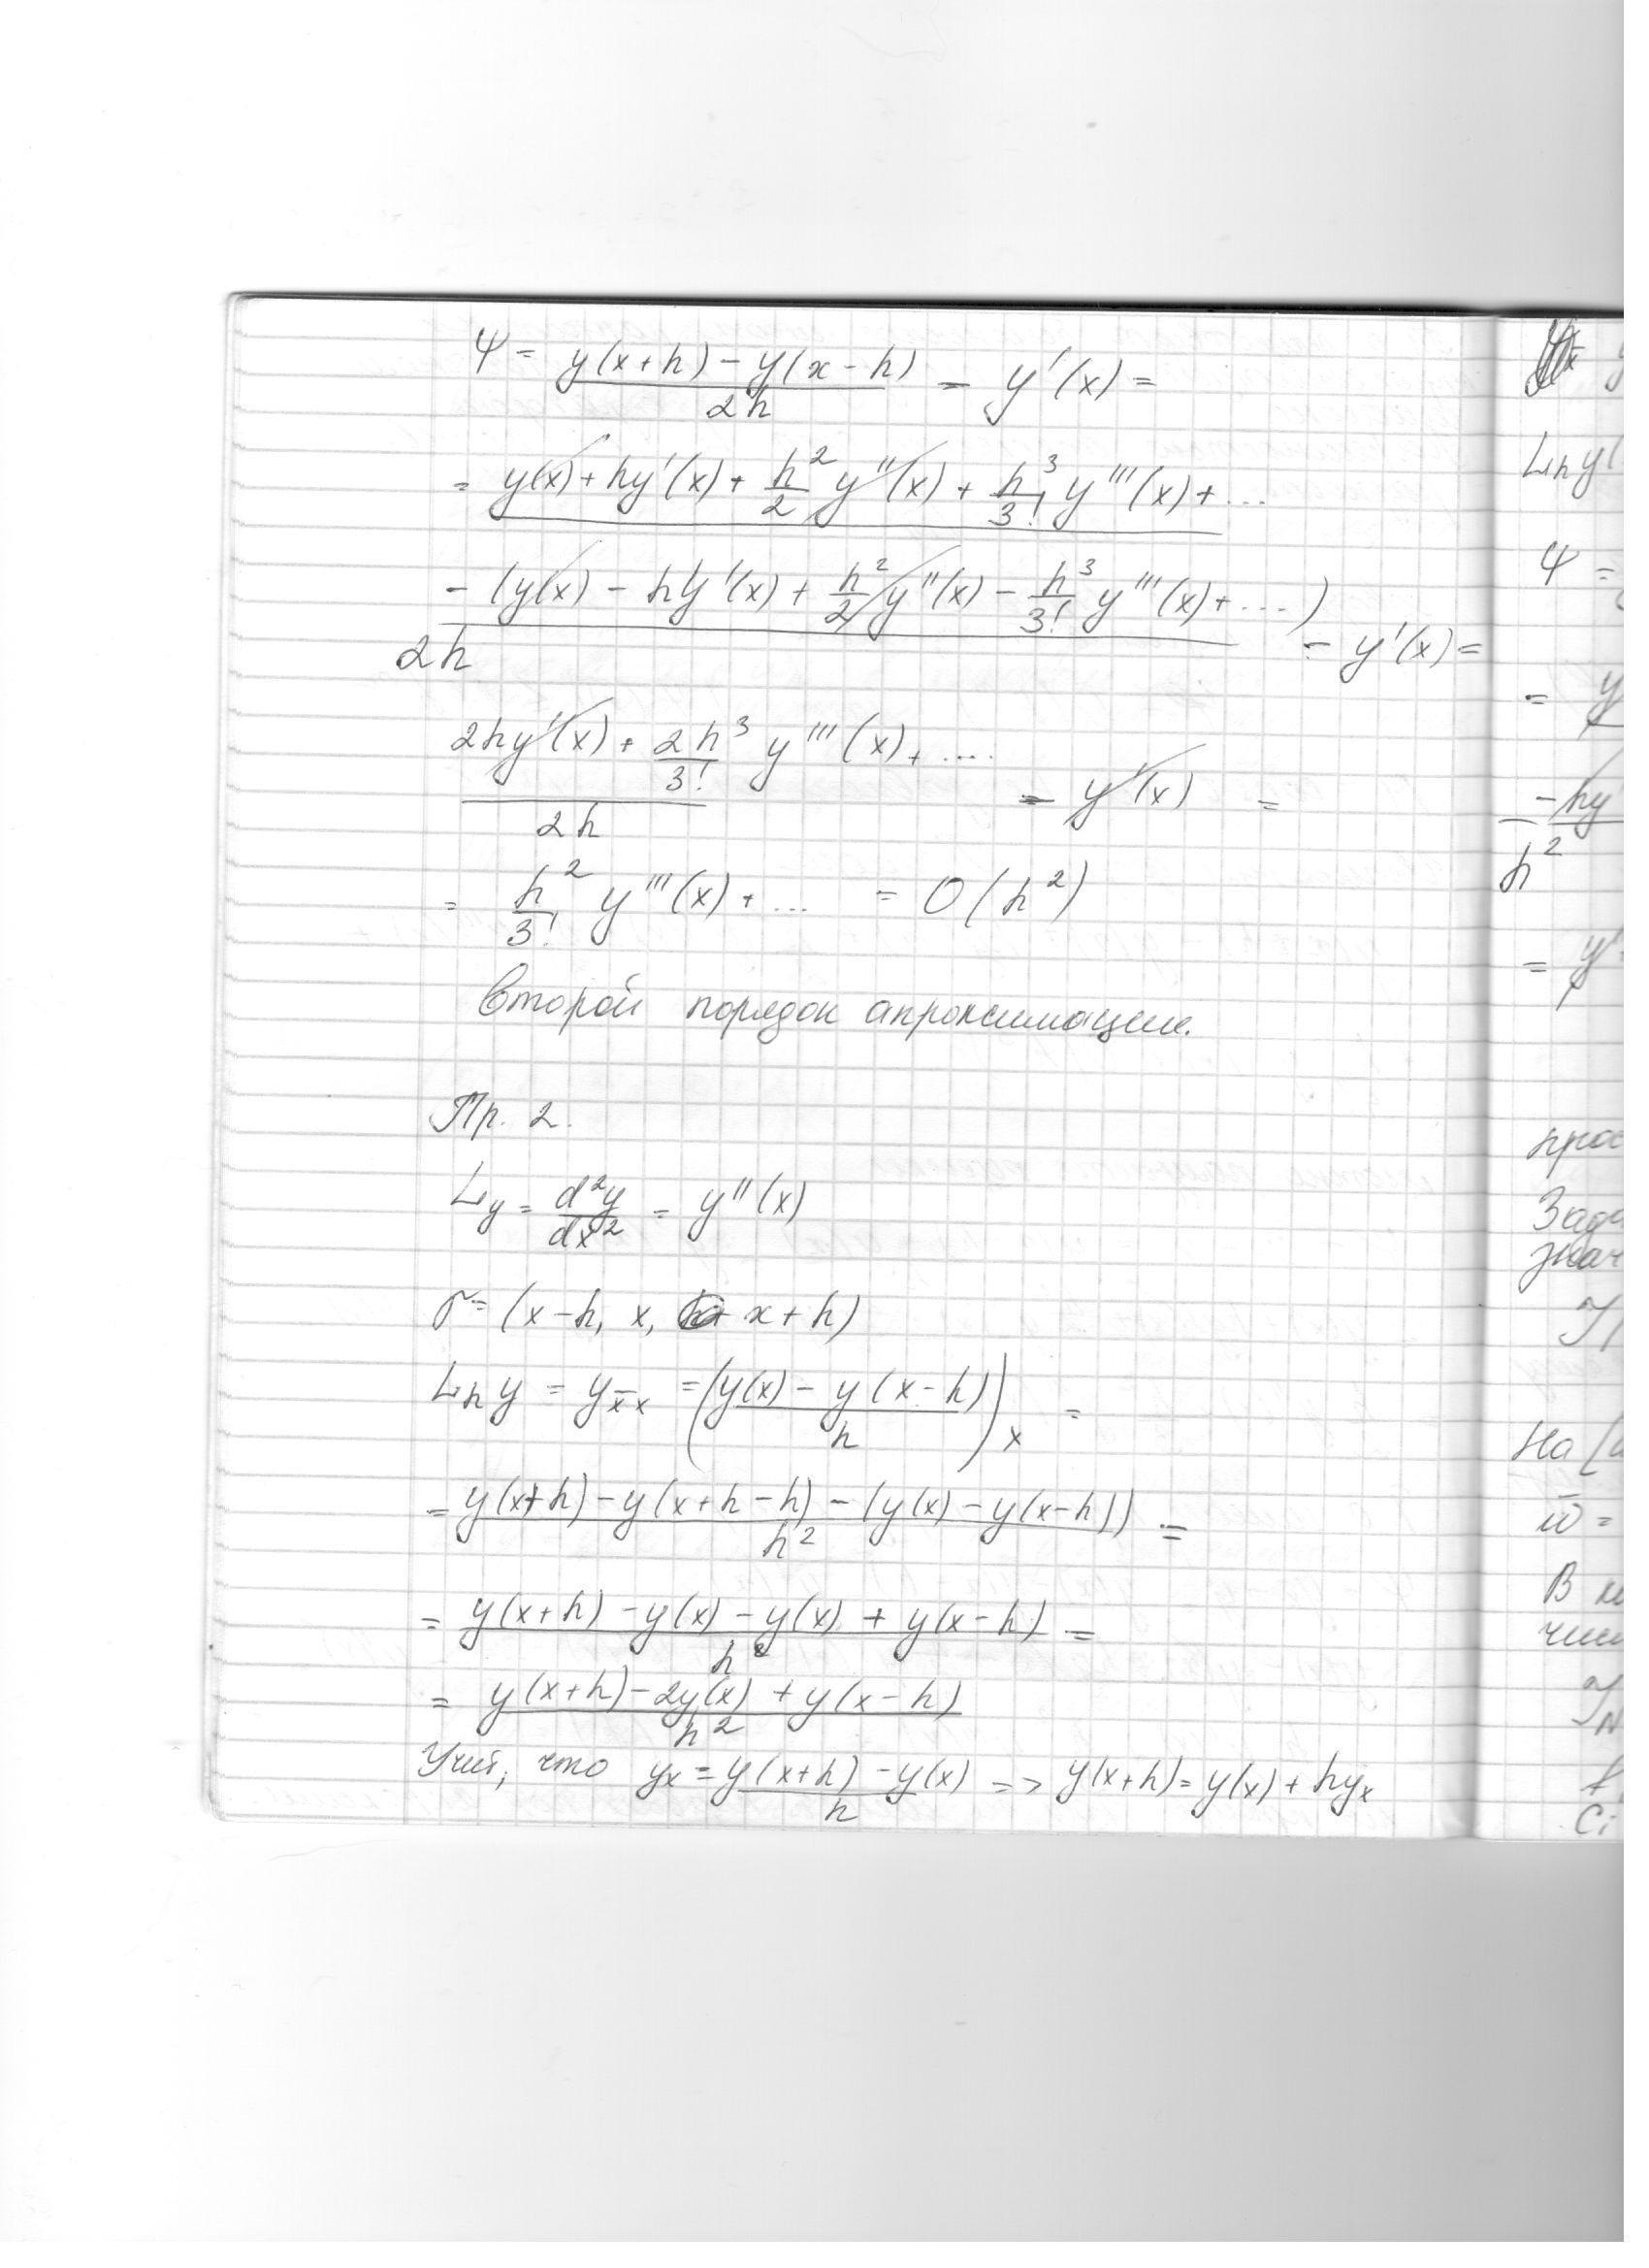 Ψ = (y(x+h) − y(x−h))/2h − y'(x) =
= y(x) + hy'(x) + h²/2 y''(x) + h³/3! y'''(x) + ...
− (y(x) − hy'(x) + h²/2 y''(x) − h³/3! y'''(x) + ...)
2h − y'(x) =
(2hy'(x) + 2h³/3! y'''(x) + ....)/2h − y'(x) =
= h²/3! y'''(x) + ... = O(h²)
Второй порядок апроксимации.
Пр. 2.
Ly = d²y/dx² = y''(x)
= (x−h, x, x+h)
Lₕy = y_x̄x = ((y(x) − y(x−h))/h)ₓ =
= (y(x+h) − y(x+h−h) − (y(x) − y(x−h)))/h² =
= (y(x+h) − y(x) − y(x) + y(x−h))/h² =
= (y(x+h) − 2y(x) + y(x−h))/h²
что yₓ = (y(x+h) − y(x))/h => y(x+h) = y(x) + hyₓ
Lₕy(
Ψ =
= y
−hy'
h²
= y'
На [
ω̄ =
В